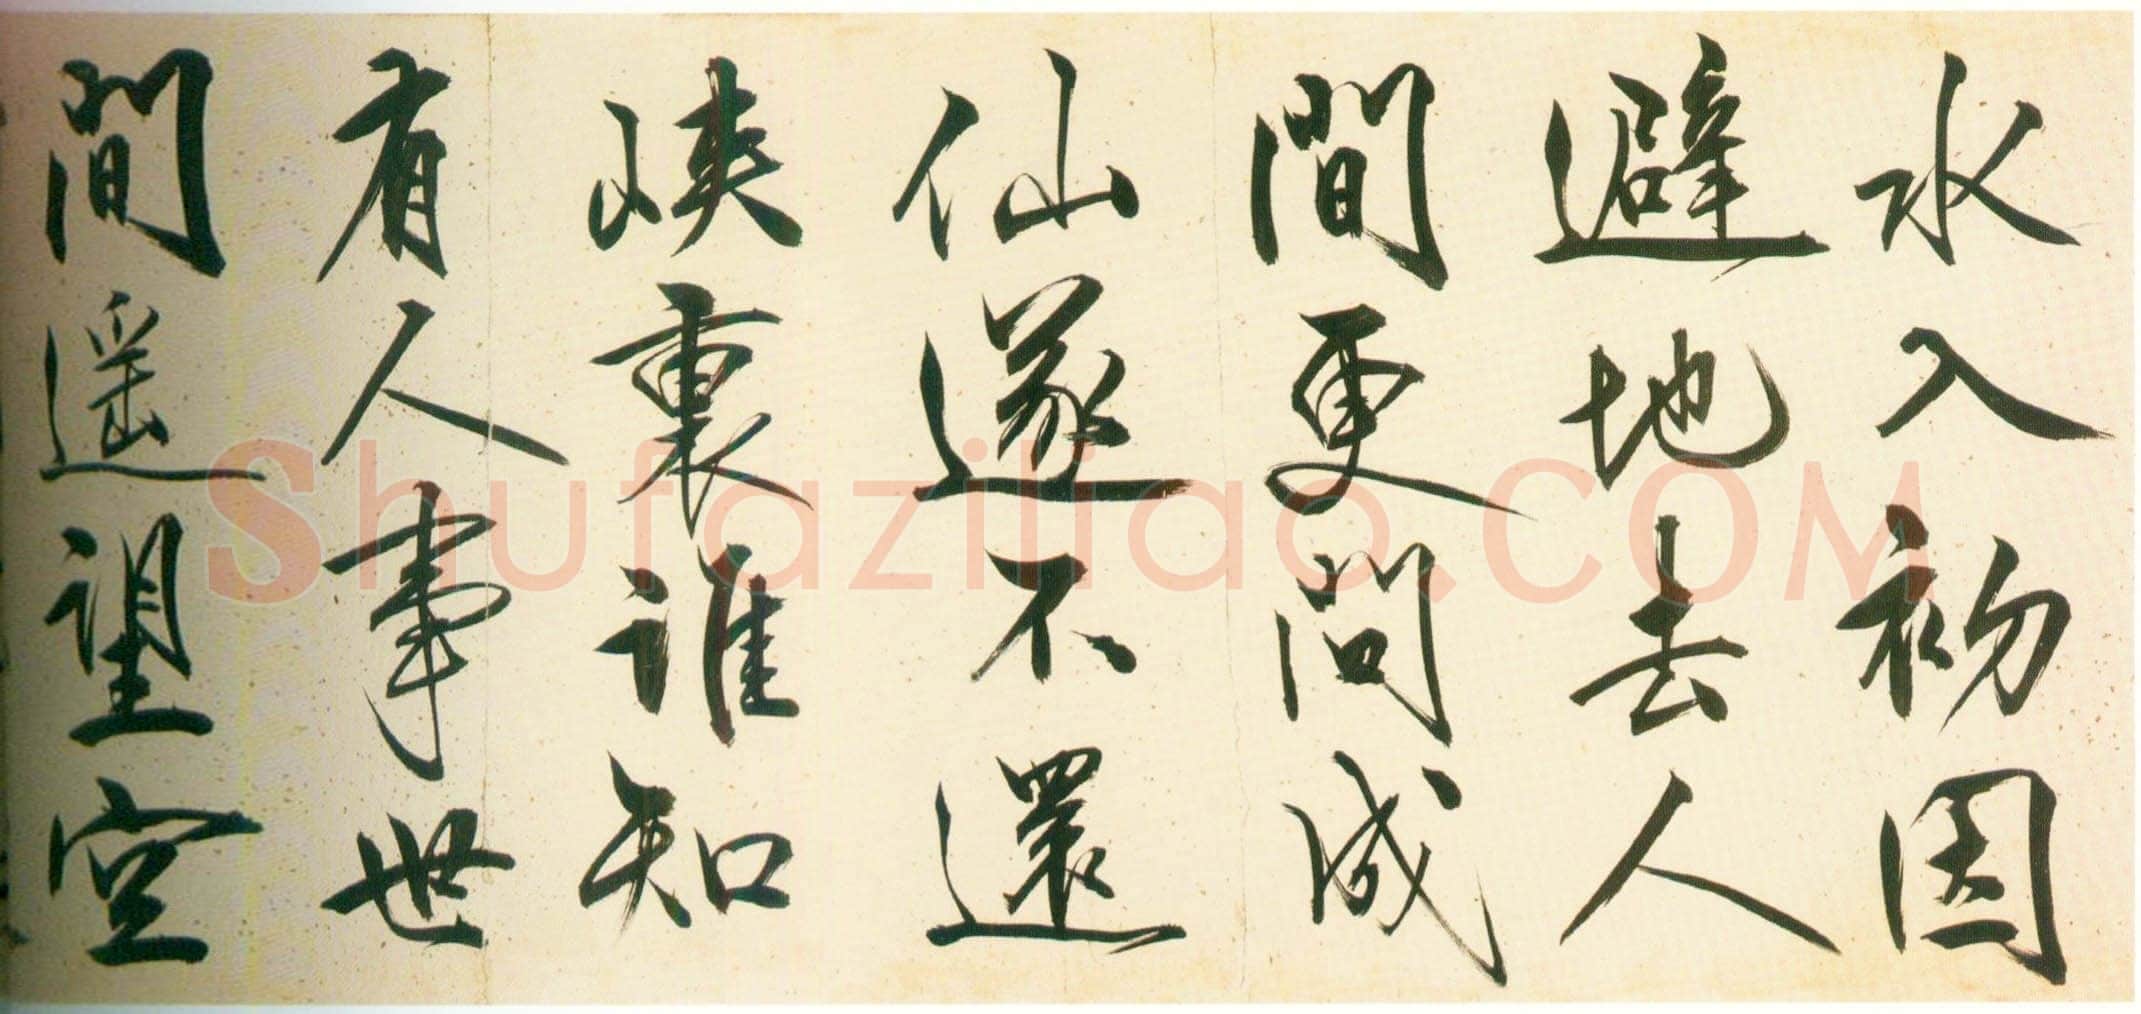 水入初因
避地去人
間更問成
仙遂不還
峽裏誰知
有人事世
間遥望空
Shufaziliao.COM